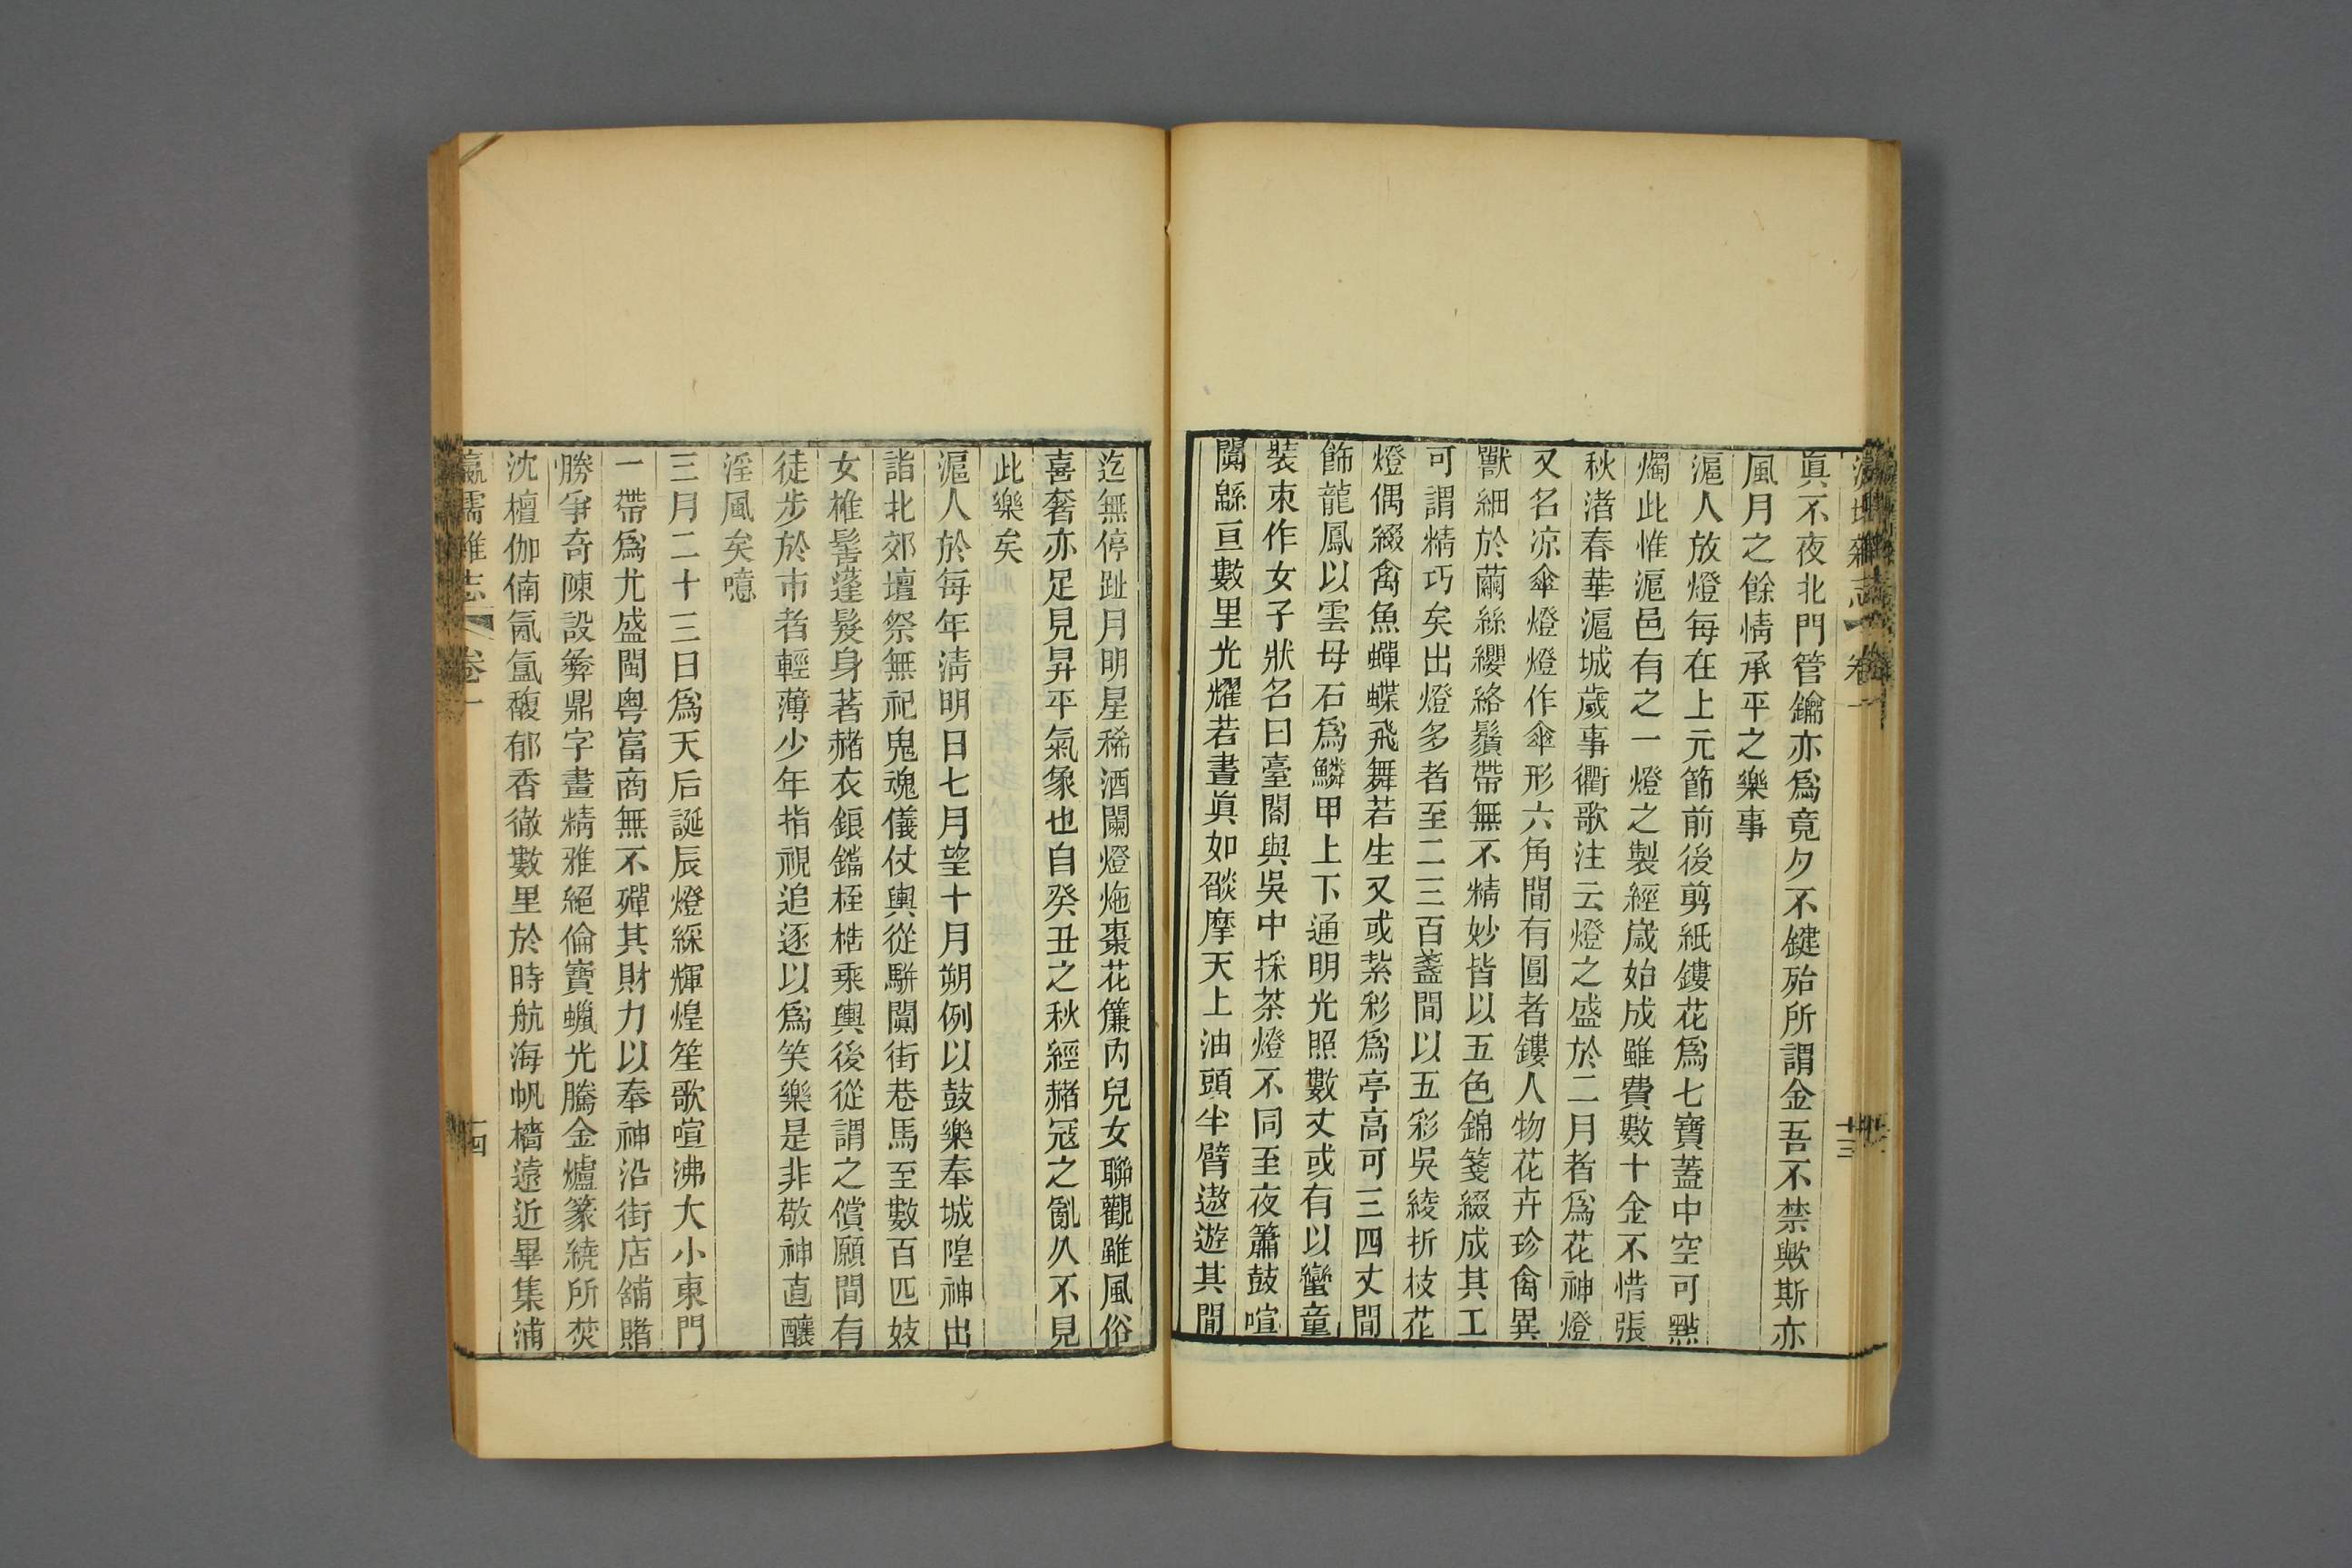 瀛壖雜志 卷一 十三
眞不夜北門管鑰亦爲竟夕不鍵殆所謂金吾不禁歟斯亦
風月之餘情承平之樂事
滬人放燈每在上元節前後剪紙鏤花爲七寶蓋中空可㸃
燭此惟滬邑有之一燈之製經歲始成雖費數十金不惜張
秋渚春華滬城歲事衢歌注云燈之盛於二月者爲花神燈
又名凉傘燈燈作傘形六角間有圓者鏤人物花卉珍禽異
獸細於繭絲纓絡鬚帶無不精妙皆以五色錦箋綴成其工
可謂精巧矣出燈多者至二三百盞間以五彩吳綾折枝花
燈偶綴禽魚蟬蝶飛舞若生又或紮彩爲亭高可三四丈間
飾龍鳳以雲母石爲鱗甲上下通明光照數丈或有以蠻童
裝朿作女子狀名曰臺閣與吳中採茶燈不同至夜簫鼓喧
闐緜亘數里光耀若晝眞如燄摩天上油頭半臂遨遊其間
迄無停趾月明星稀酒闌燈灺棗花簾內兒女聯觀雖風俗
喜奢亦足見昇平氣象也自癸丑之秋經赭寇之亂久不見
此樂矣
滬人於每年淸明日七月望十月朔例以鼓樂奉城隍神出
詣北郊壇祭無祀鬼魂儀仗輿從駢闐街巷馬至數百匹妓
女椎髻蓬髮身著赭衣鋃鐺桎梏乘輿後從謂之償願間有
徒步於市者輕薄少年指視追逐以爲笑樂是非敬神直釀
淫風矣噫
三月二十三日爲天后誕辰燈綵輝煌笙歌喧沸大小東門
一帶爲尤盛閩粤富商無不殫其財力以奉神沿街店舖賭
勝爭奇陳設彝鼎字畫精雅絕倫寶蠟光騰金爐篆繞所焚
沈檀伽俑氤氳馥郁香徹數里於時航海帆檣遠近畢集浦
瀛壖雜志 卷一 十四